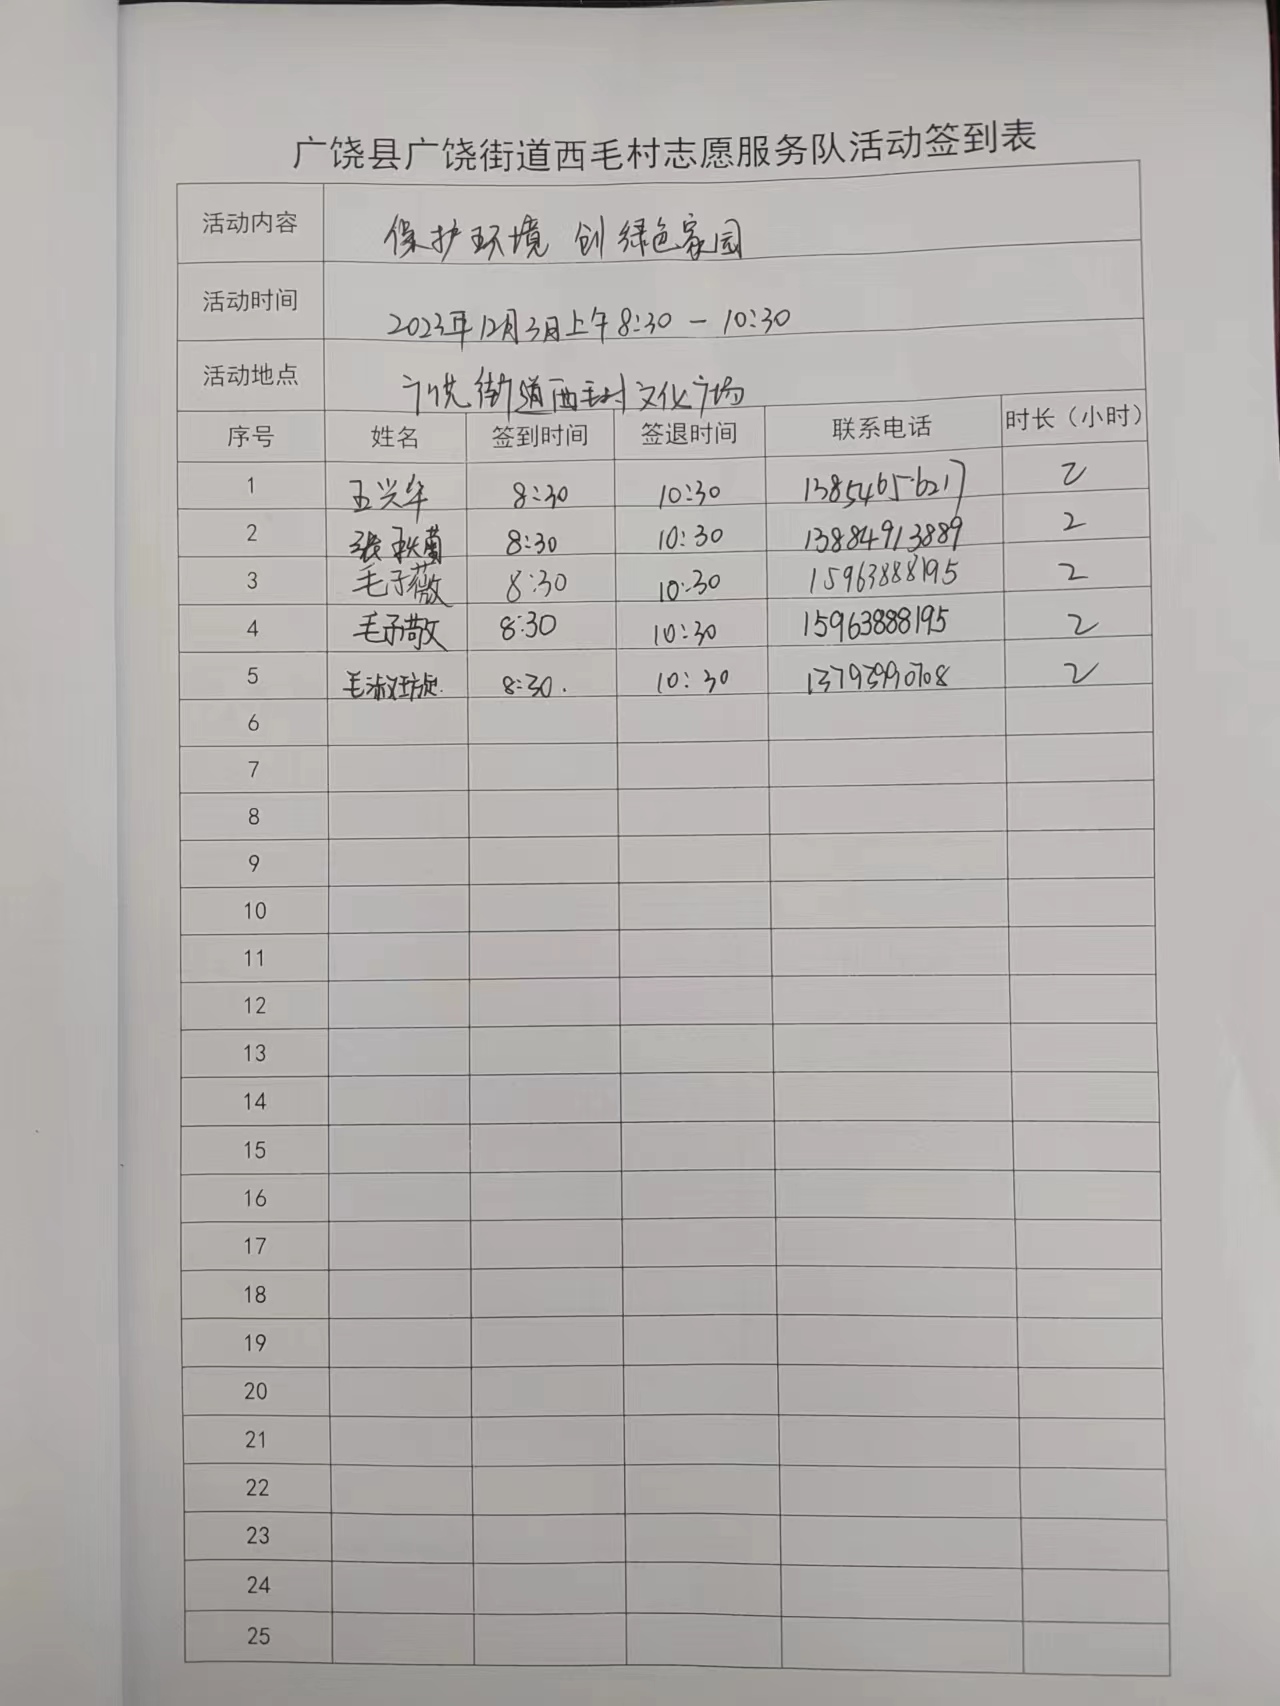 广饶县广饶街道西毛村志愿服务队活动签到表
活动内容 保护环境 创绿色家园
活动时间 2023年12月3日上午8:30 — 10:30
活动地点 广饶街道西毛村文化广场
序号 姓名 签到时间 签退时间 联系电话 时长（小时）
1 王兴华 8:30 10:30 13854656217 2
2 张秋菊 8:30 10:30 13884913889 2
3 毛子薇 8:30 10:30 15963888195 2
4 毛子敬 8:30 10:30 15963888195 2
5 毛淑 8:30. 10:30 13793990708 2
6
7
8
9
10
11
12
13
14
15
16
17
18
19
20
21
22
23
24
25